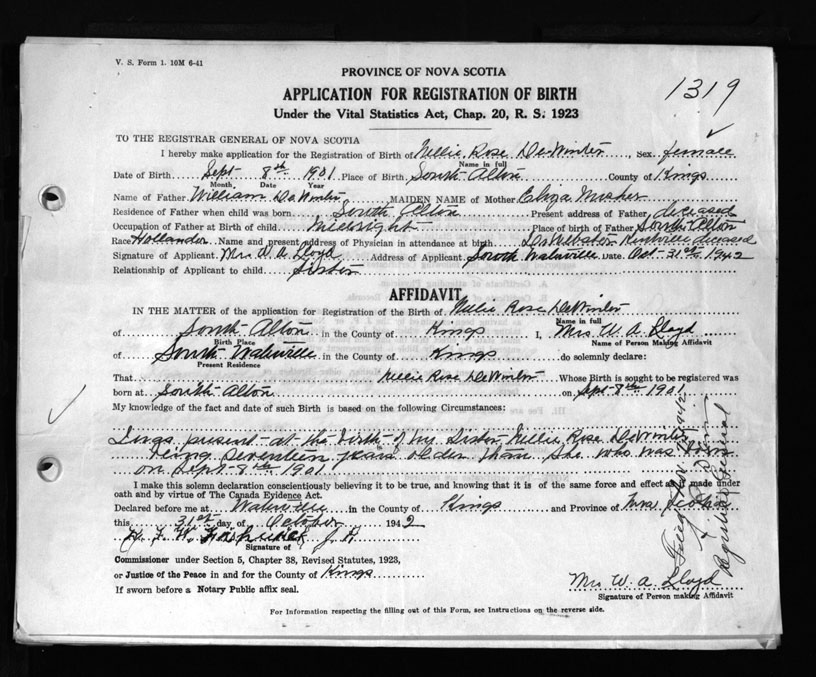 V. S. Form 1. 10M 6-41
1319
PROVINCE OF NOVA SCOTIA
APPLICATION FOR REGISTRATION OF BIRTH
Under the Vital Statistics Act, Chap. 20, R. S. 1923
TO THE REGISTRAR GENERAL OF NOVA SCOTIA
I hereby make application for the Registration of Birth of Nellie Rose DeWinter, Sex female
Name in full
Date of Birth Sept 8th 1901 Place of Birth South Alton County of Kings
Month, Date Year
Name of Father William DeWinter MAIDEN NAME of Mother Eliza Mosher
Residence of Father when child was born South Alton Present address of Father deceased
Occupation of Father at Birth of child Millwright Place of birth of Father South Alton
Race Hollander Name and present address of Physician in attendance at birth Dr Webster Kentville deceased
Signature of Applicant Mrs W. A. Lloyd Address of Applicant South Waterville Date Oct 31st 1942
Relationship of Applicant to child Sister
AFFIDAVIT
IN THE MATTER of the application for Registration of the Birth of Nellie Rose DeWinter
Name in full
of South Alton in the County of Kings I, Mrs. W. A. Lloyd
Birth Place Name of Person Making Affidavit
of South Waterville in the County of Kings do solemnly declare:
Present Residence
That Nellie Rose DeWinter Whose Birth is sought to be registered was
born at South Alton on Sept 8th 1901
My knowledge of the fact and date of such Birth is based on the following Circumstances:
I was present at the birth of my Sister Nellie Rose DeWinter
being seventeen years older than she who was born
on Sept 8th 1901
I make this solemn declaration conscientiously believing it to be true, and knowing that it is of the same force and effect as if made under
oath and by virtue of The Canada Evidence Act.
Declared before me at Waterville in the County of Kings and Province of Nova Scotia
this 31st day of October 1942
J. P.
Signature of
Commissioner under Section 5, Chapter 38, Revised Statutes, 1923,
or Justice of the Peace in and for the County of Kings
If sworn before a Notary Public affix seal.
Mrs W. A. Lloyd
Signature of Person making Affidavit
For Information respecting the filling out of this Form, see Instructions on the reverse side.
Registrar General